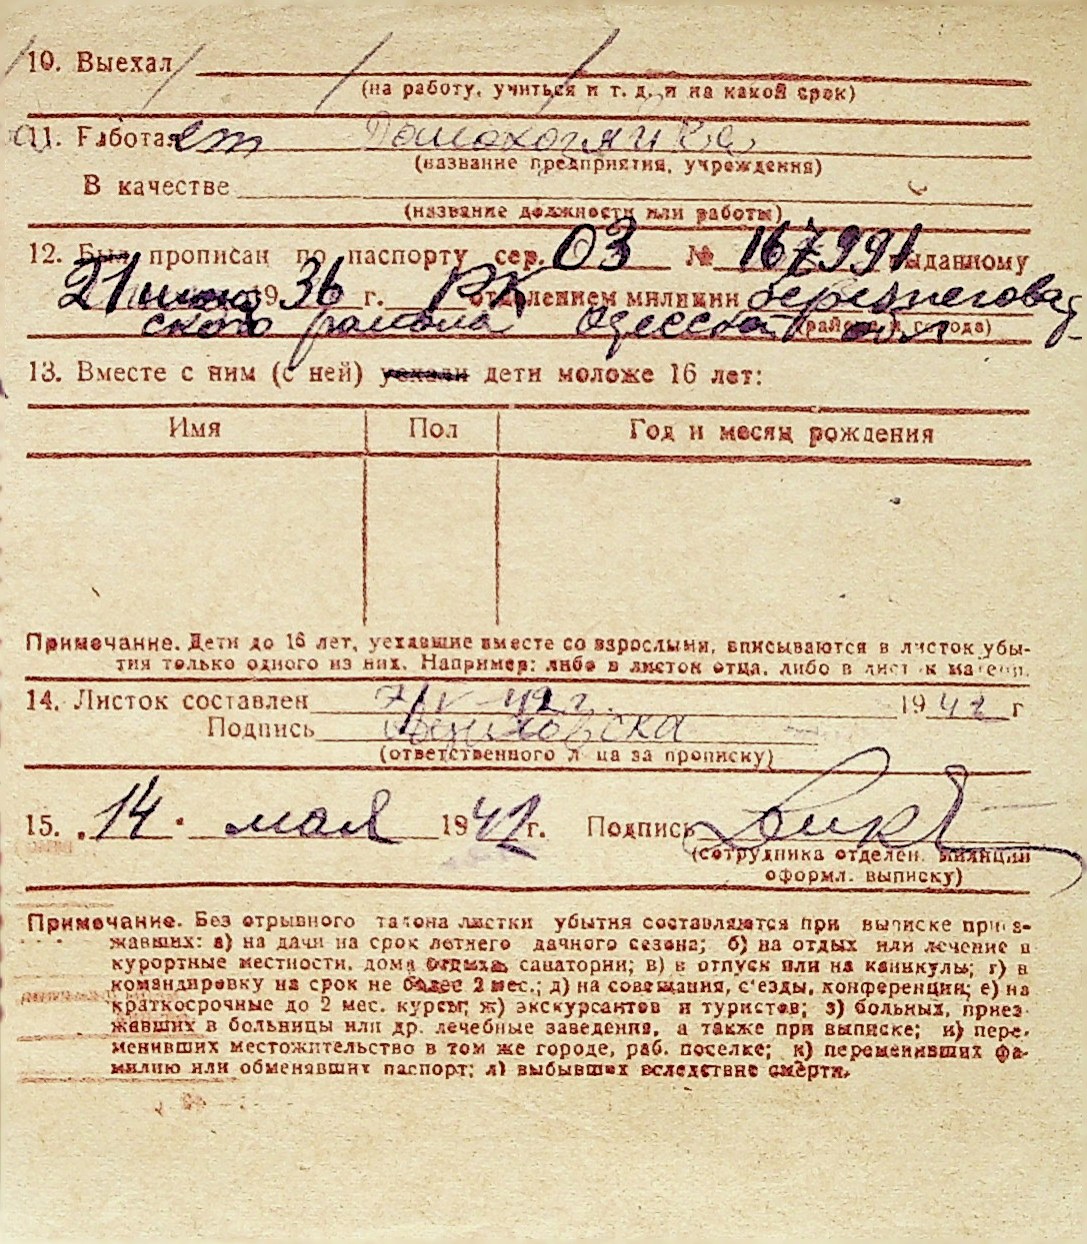 10. Выехал
(на работу, учиться и т. д. и на какой срок)
11. Работает Домохозяйка
(название предприятия, учреждения)
В качестве
(название должности или работы)
12. Был прописан по паспорту сер. 03 № 167991 выданному
21 июня 1936 г. РК отделением милиции березнеговат-
ского района Одесской обл
(района и города)
13. Вместе с ним (с ней) уехали дети моложе 16 лет:
Имя Пол Год и месяц рождения
Примечание. Дети до 16 лет, уехавшие вместе со взрослыми, вписываются в листок убы-
тия только одного из них. Например: либо в листок отца, либо в листок матери.
14. Листок составлен 7/V-42 г. 1942 г
Подпись
(ответственного лица за прописку)
15. 14 мая 1942 г. Подпись
(сотрудника отделен. милиции
оформл. выписку)
Примечание. Без отрывного талона листки убытия составляются при выписке приез-
жавших: а) на дачи на срок летнего дачного сезона; б) на отдых или лечение в
курортные местности, дома отдыха, санатории; в) в отпуск или на каникулы; г) в
командировку на срок не более 2 мес.; д) на совещания, с'езды, конференции; е) на
краткосрочные до 2 мес. курсы; ж) экскурсантов и туристов; з) больных, приез-
жавших в больницы или др. лечебные заведения, а также при выписке; и) пере-
менивших местожительство в том же городе, раб. поселке; к) переменивших фа-
милию или обменявших паспорт; л) выбывших вследствие смерти.